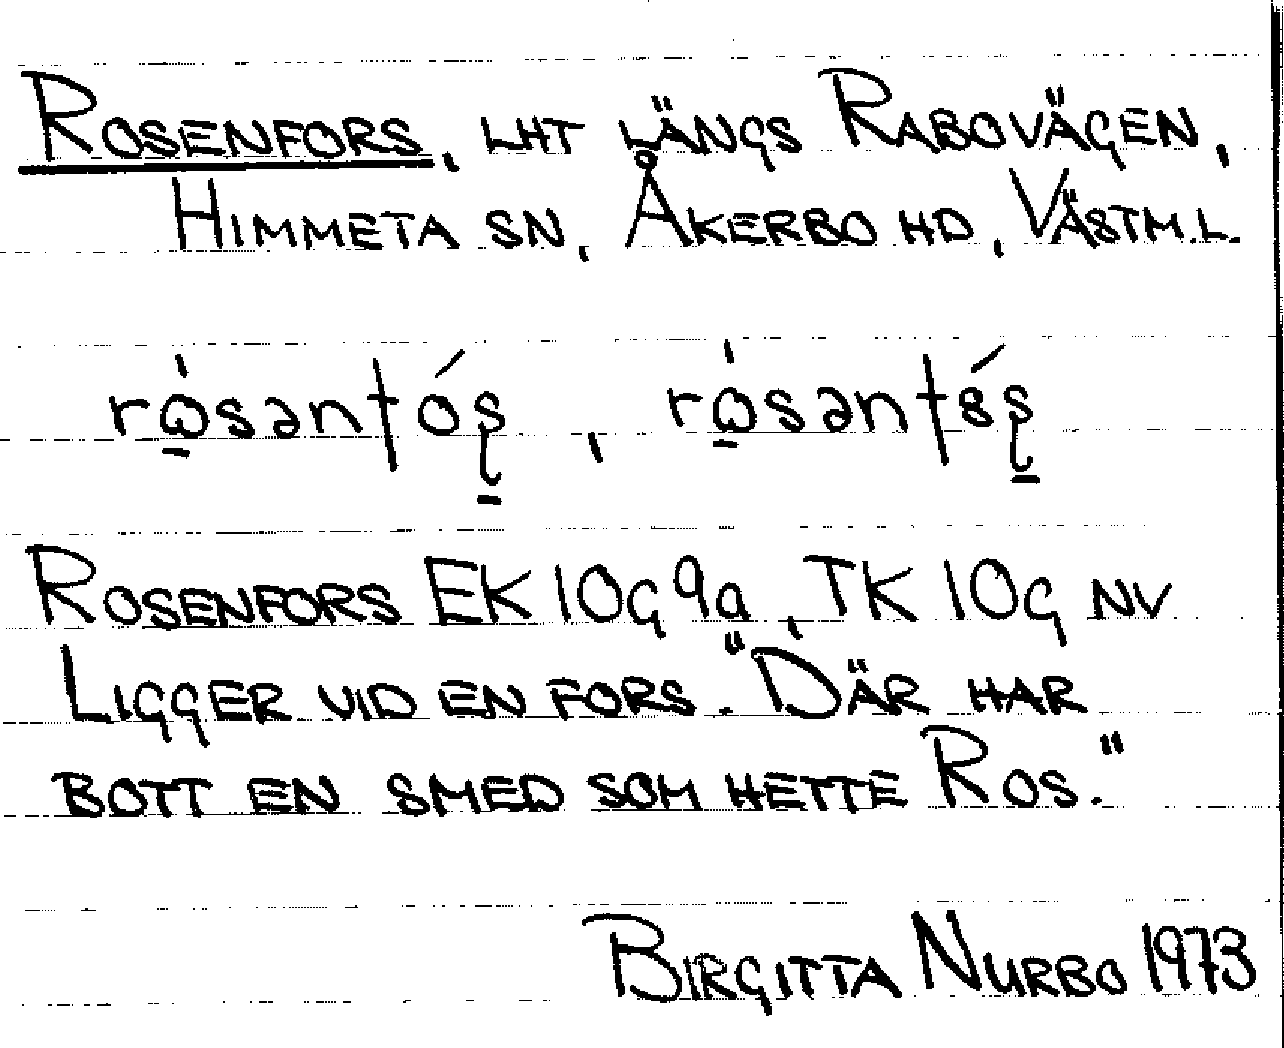 ROSENFORS, LHT LÄNGS RABOVÄGEN,
HIMMETA SN, ÅKERBO HD, VÄSTM.L.
ROSENFORS EK 10G 9a, TK 10G NV
LIGGER VID EN FORS. "DÄR HAR
BOTT EN SMED SOM HETTE ROS."
BIRGITTA NURBO 1973